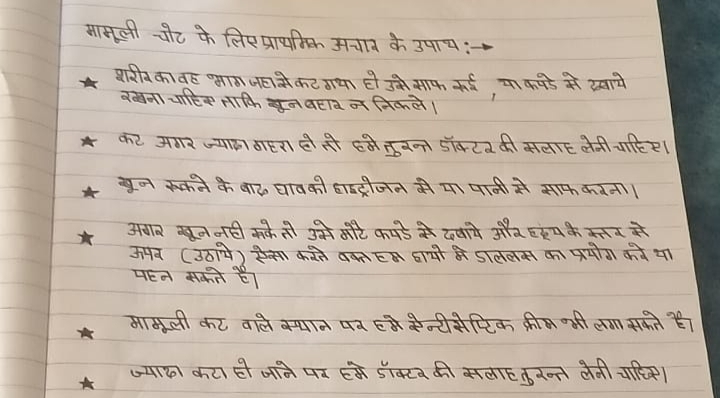 मामूली चोट के लिए प्राथमिक अचार के उपाय :→
★ शरीर का वह भाग जहा से कट गया हो उसे साफ रूई , या कपडे से दबाये
रखना चाहिए ताकि खून बहार न निकले।
★ कट अगर ज्यादा गहरा हो तो हमे तुरन्त डॉक्टर की सलाह लेनी चाहिए।
★ खून रूकने के बाद घाव को हाइड्रीजन से या पानी से साफ करना।
★ अगर खून नही रूके तो उसे मोटे कपडे से दबाये और हृदय के स्तर से
ऊपर (उठाये) ऐसा करते वक्त हम हाथो मे डाललस का प्रयोग करे या
पहन सकते है।
★ मामूली कट वाले स्थान पर हमे सेन्टीसेप्टिक क्रीम भी लगा सकते है।
★ ज्यादा कटा हो जाने पर हमे डॉक्टर की सलाह तुरन्त लेनी चाहिए।